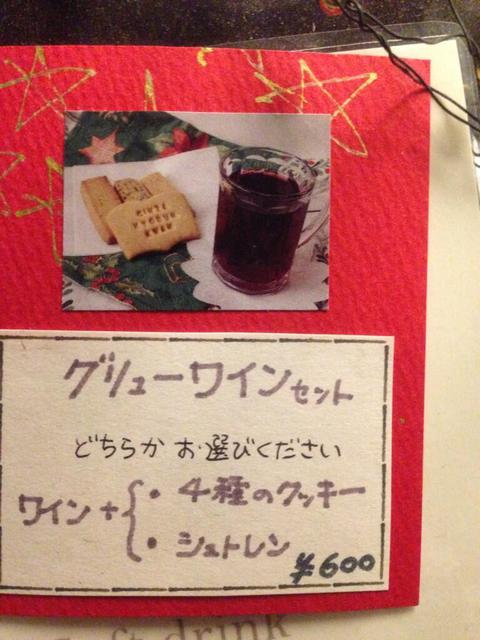 グリューワインセット
どちらか お選びください
ワイン+{・4種のクッキー
・シュトレン
¥600
ft drink